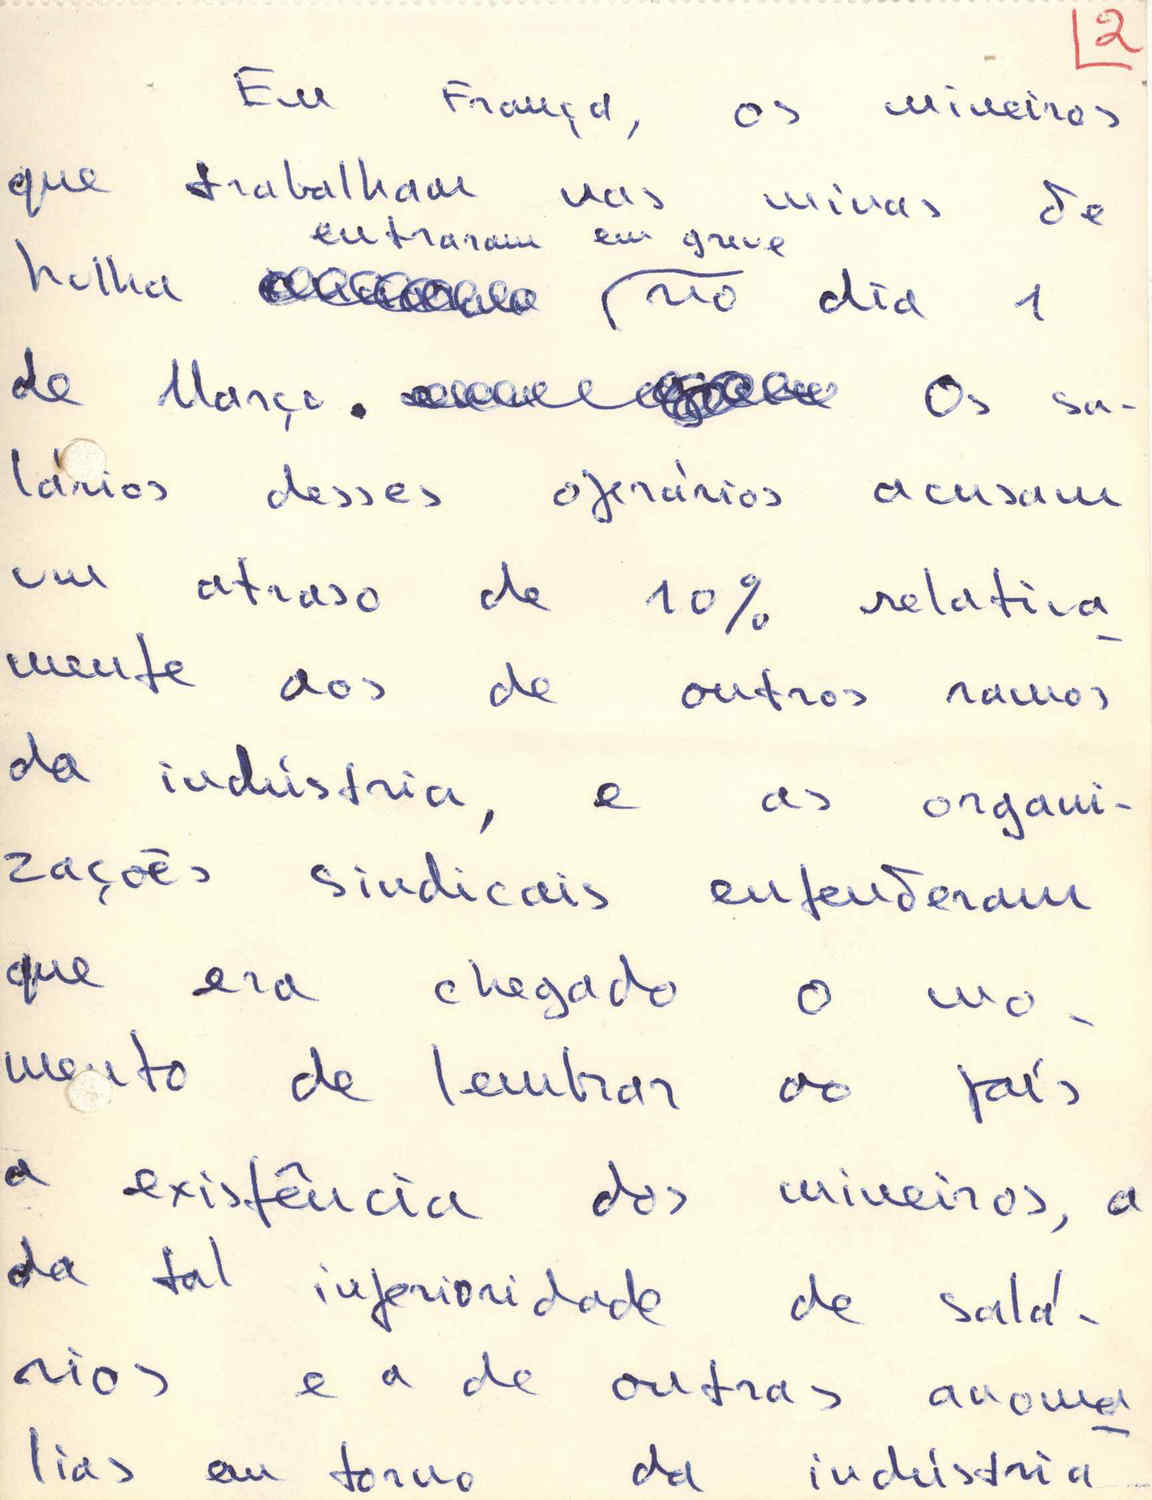 2
Em França, os mineiros
que trabalham nas minas de
entraram em greve
hulha no dia 1
de Março. Os sa-
lários desses operários acusam
um atraso de 10% relativa
mente aos de outros ramos
da indústria, e as organi-
zações sindicais entenderam
que era chegado o mo-
mento de lembrar ao país
a existência dos mineiros, a
da tal inferioridade de salá-
rios e a de outras anoma
lias em torno da indústria